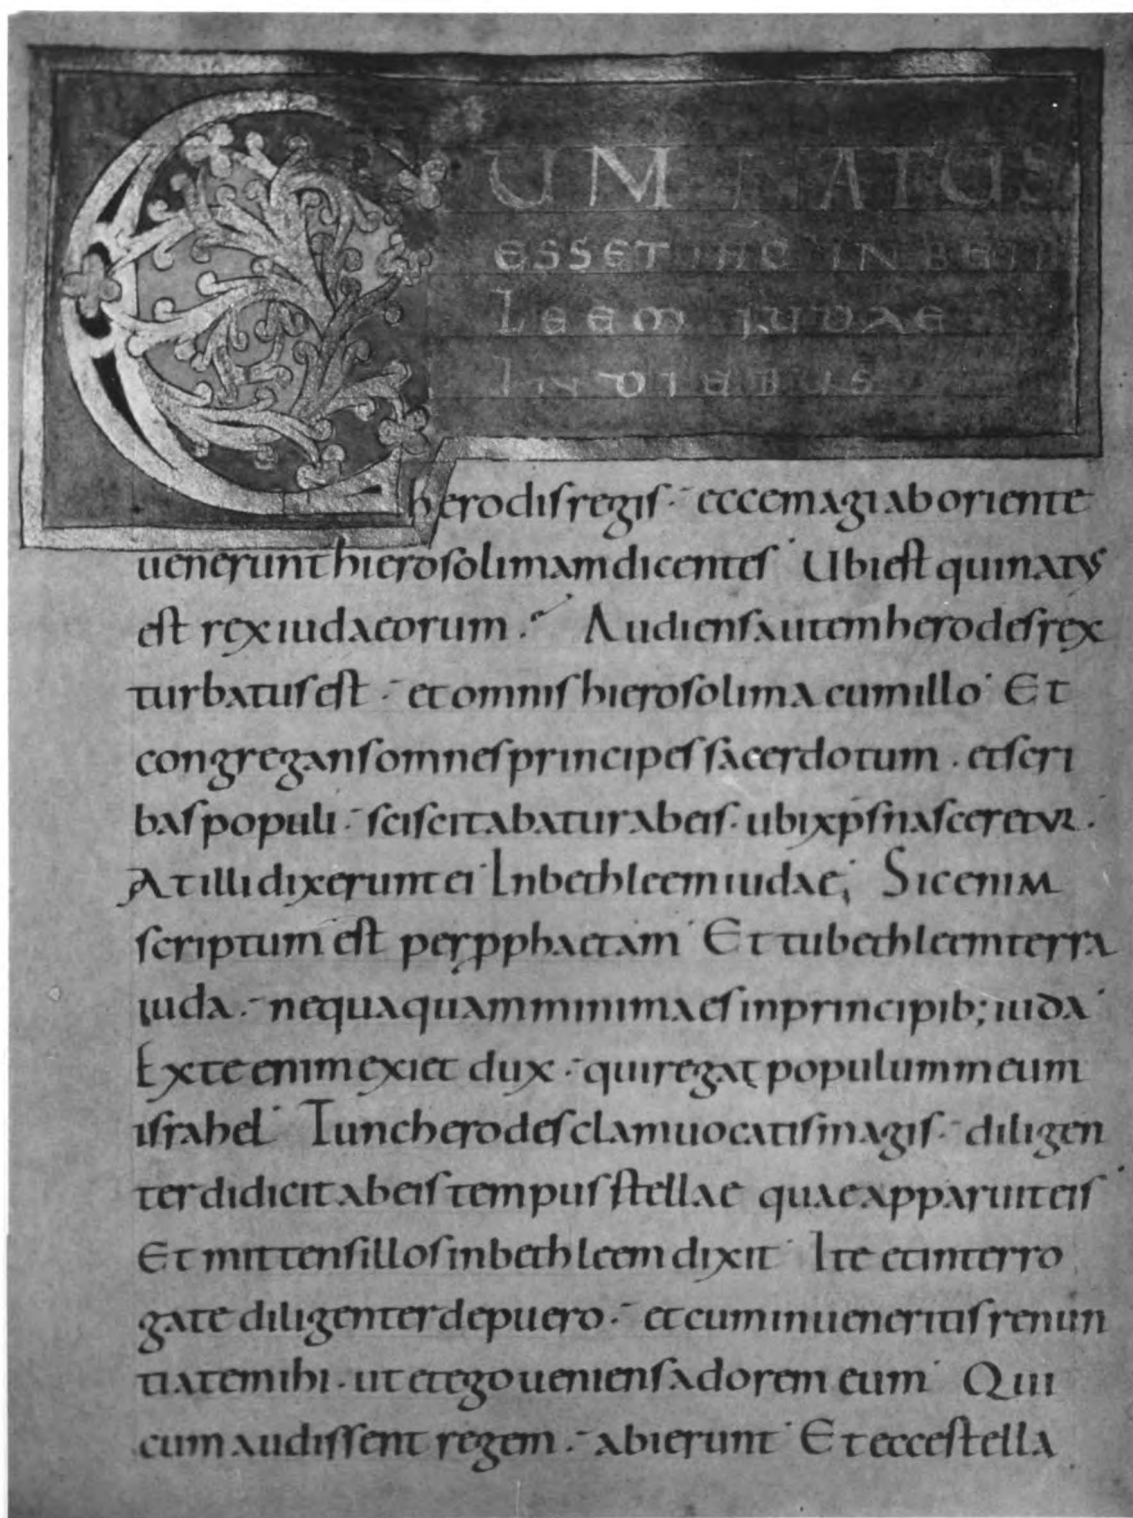 CUM NATUS
ESSET IHC IN BETH
LEEM IUDAE
IN DIEBUS
herodis regis . eccemagi ab oriente
uenerunt hierosolimam dicentes Ubi est qui natus
est rex iudaeorum . Audiens autem herodes rex
turbatus est . et omnis hierosolima cum illo Et
congregans omnes principes sacerdotum . et scri
bas populi . sciscitabatur ab eis . ubi xps nasceretur .
At illi dixerunt ei In bethleem iudae; Sic enim
scriptum est per pphaetam Et tu bethleem terra
iuda . nequaquam minima es in principib; iuda
Ex te enim exiet dux . qui regat populum meum
israhel Tunc herodes clam uocatis magis . diligen
ter didicit ab eis tempus stellae quae apparuit eis
Et mittens illos in bethleem dixit Ite et interro
gate diligenter de puero . et cum inueneritis renun
tiate mihi . ut et ego ueniens adorem eum Qui
cum audissent regem . abierunt Et ecce stella